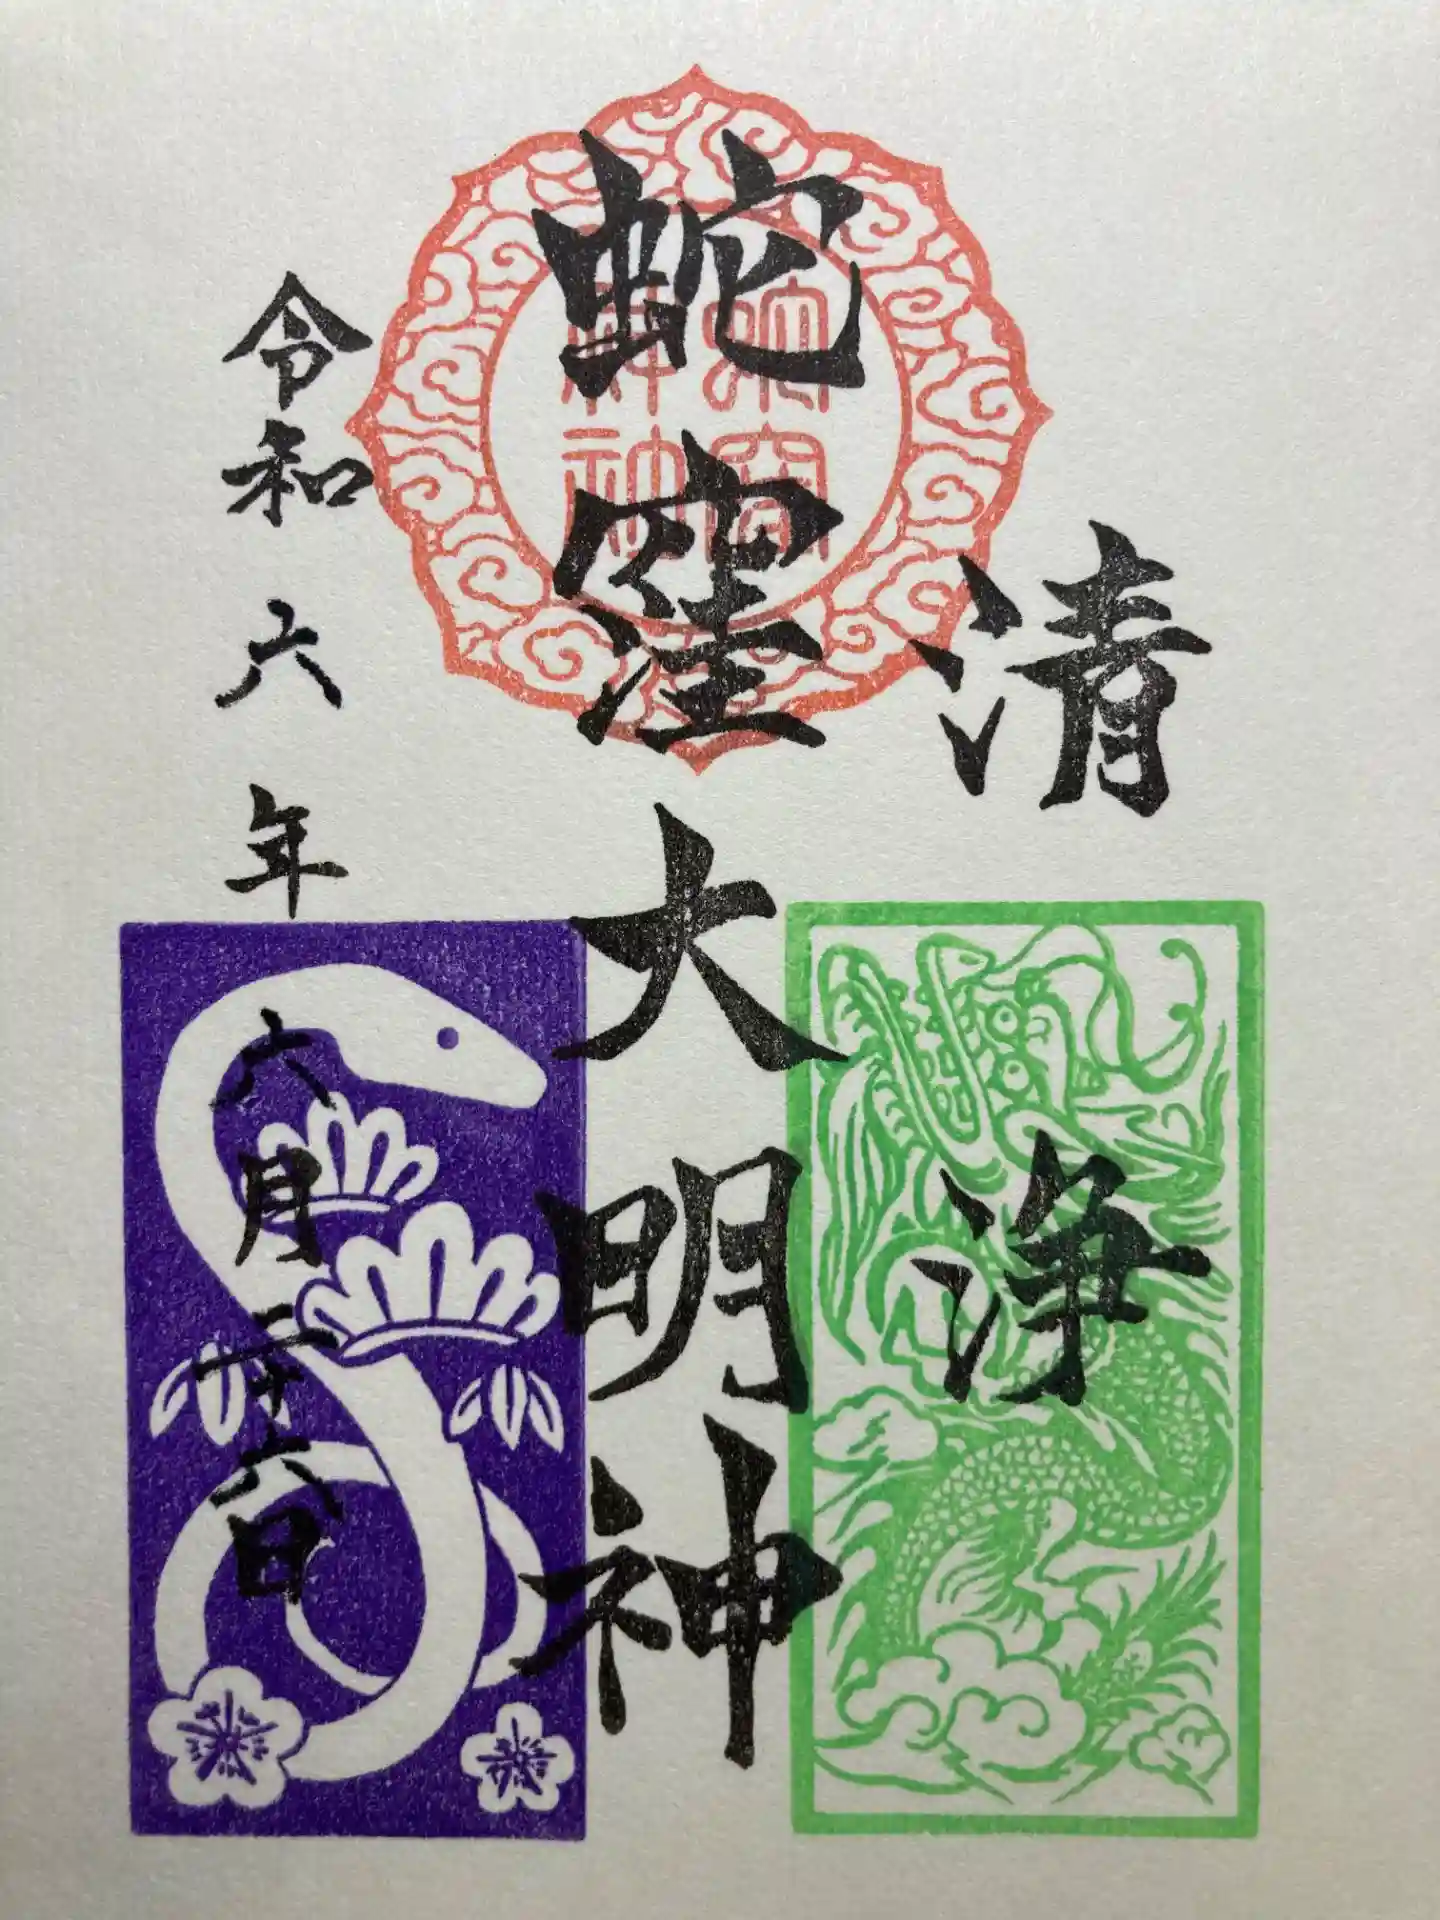 清浄
蛇窪大明神
蛇窪神社
令和六年六月二十六日